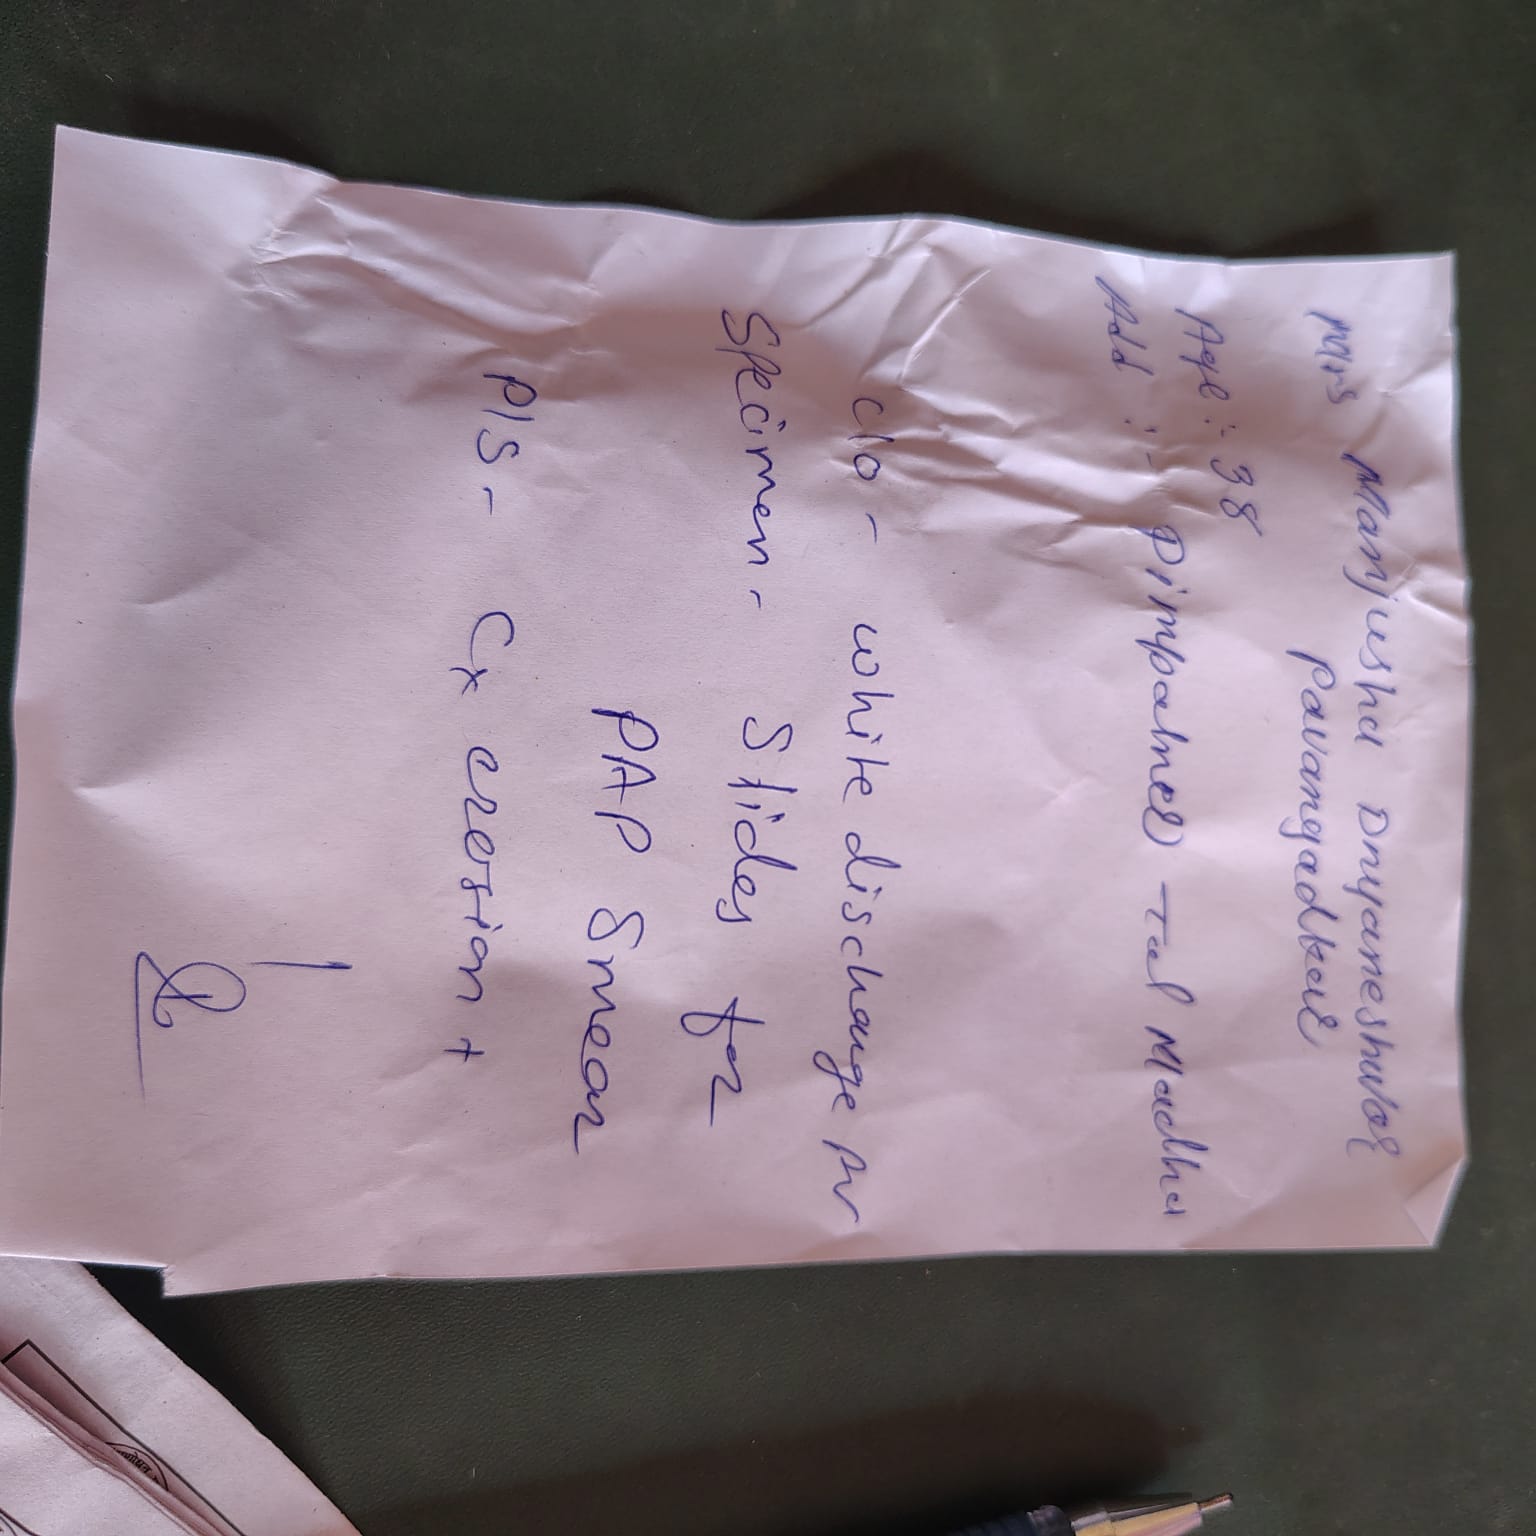 Mrs Manjusha Dnyaneshwar
Pavangadkar
Age :- 38
Add :- Pimpalner Tal Madha
c/o - white discharge PV
Specimen - Slides for
PAP Smear
P/S - Cx erosion +